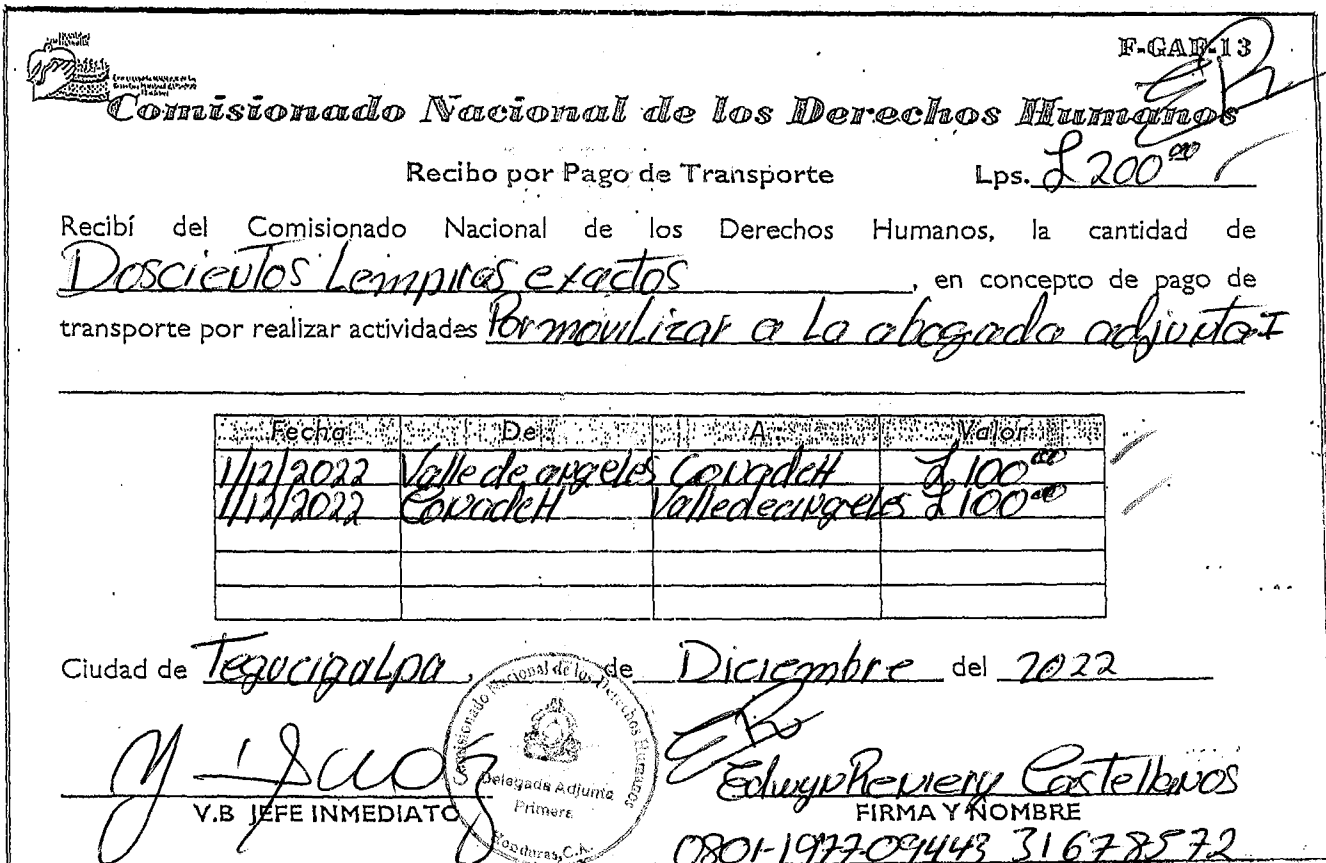 F-GAF-13
Comisionado Nacional de los Derechos Humanos
Recibo por Pago de Transporte Lps. L 200.00
Recibí del Comisionado Nacional de los Derechos Humanos, la cantidad de
Doscientos Lempiras exactos, en concepto de pago de
transporte por realizar actividades Por movilizar a La abogada adjunta I
Fecha De A Valor
1/12/2022 Valle de angeles ConadeH L 100.00
1/12/2022 ConadeH Valle de angeles L 100.00
Ciudad de Tegucigalpa, de Diciembre del 2022
Comisionado Nacional de los Derechos Humanos
Delegada Adjunta
Primera
Honduras, C.A.
V.B JEFE INMEDIATO
Edwyn Castellanos
FIRMA Y NOMBRE
0801-1977-09443 31678572